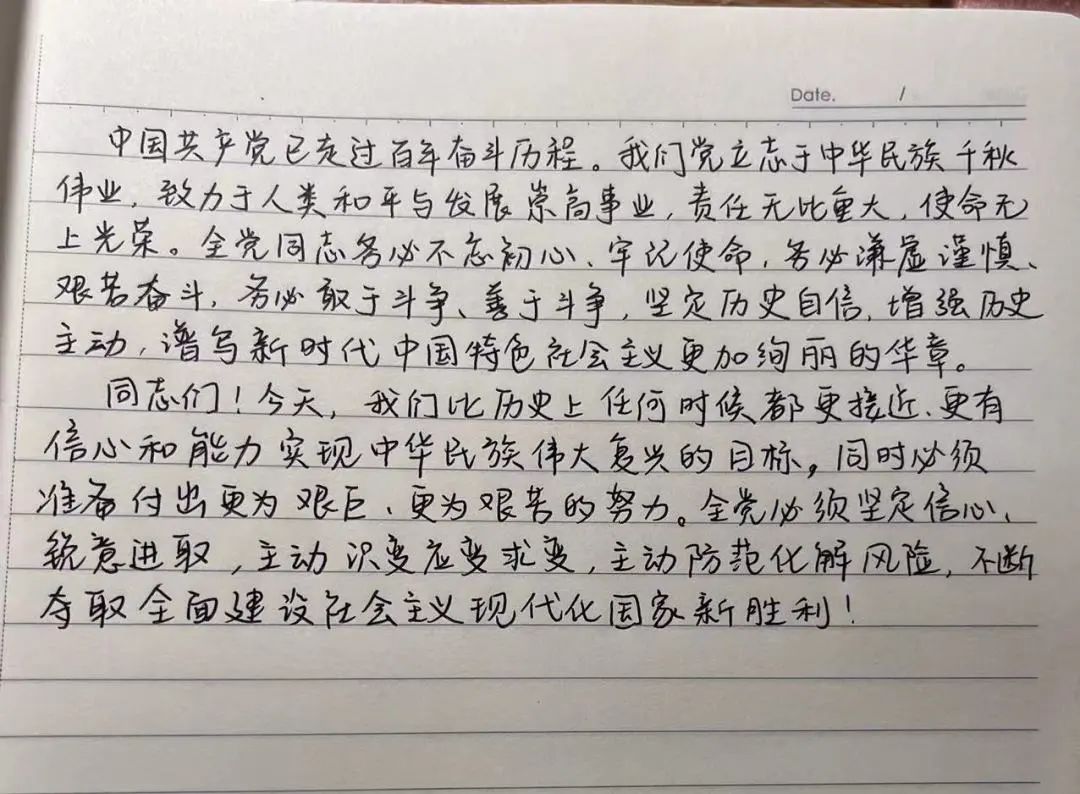 Date. /
中国共产党已走过百年奋斗历程。我们党立志于中华民族千秋
伟业，致力于人类和平与发展崇高事业，责任无比重大，使命无
上光荣。全党同志务必不忘初心、牢记使命，务必谦虚谨慎、
艰苦奋斗，务必敢于斗争、善于斗争，坚定历史自信，增强历史
主动，谱写新时代中国特色社会主义更加绚丽的华章。
同志们！今天，我们比历史上任何时候都更接近、更有
信心和能力实现中华民族伟大复兴的目标，同时必须
准备付出更为艰巨、更为艰苦的努力。全党必须坚定信心、
锐意进取，主动识变应变求变，主动防范化解风险，不断
夺取全面建设社会主义现代化国家新胜利！